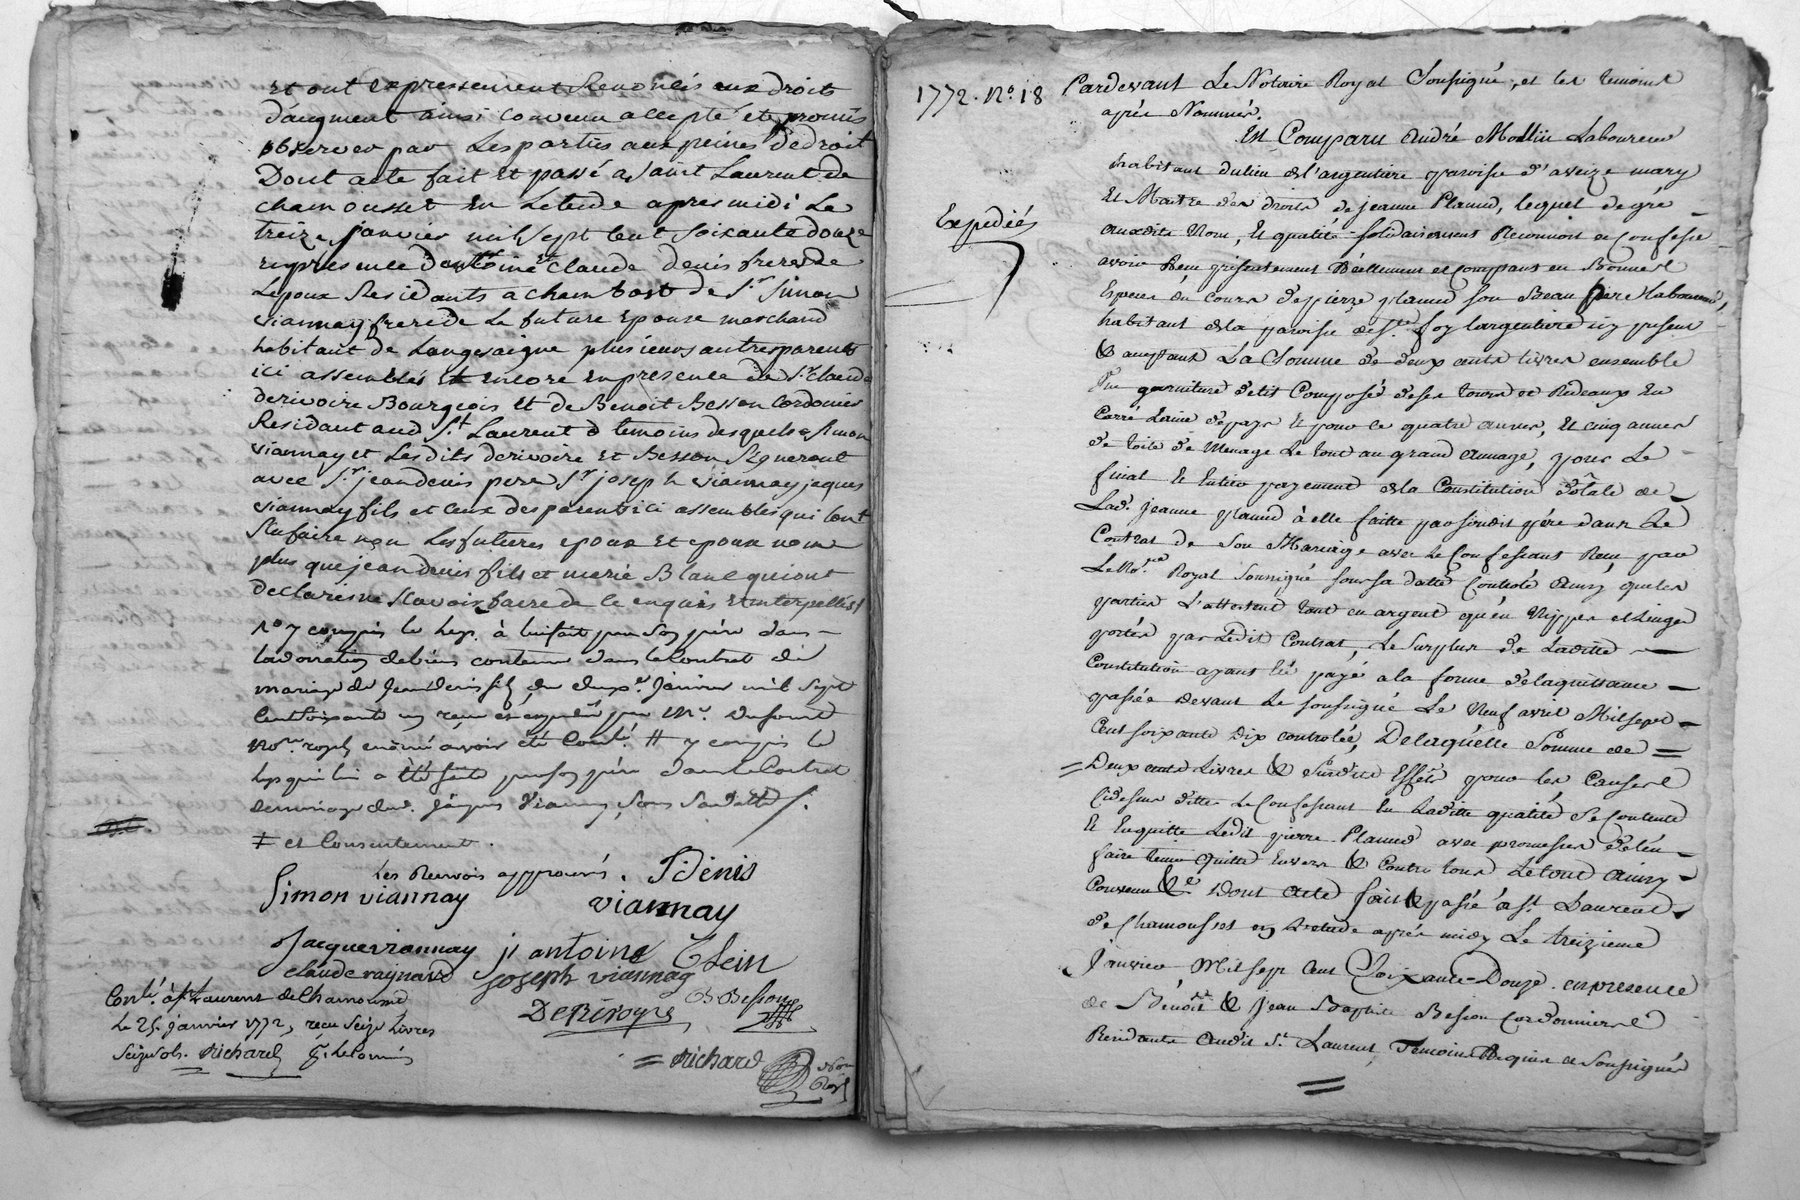 et ont expressement Renoncés aux droits
d'augment ainsi convenu accepté et promis
observer par Les parties aux peines de droit
Dont acte fait et passé a saint Laurent de
chamousset en Letude apres midi Le
treize janvier mil sept cent soixante douze
en presence d'antoine et claude denis freres de
Lepoux Residants a chambost de Sr Simon
viannay frere de La future epouse marchand
habitant de Longesaigne plusieurs autres parents
ici assemblés et encore en presence de Sr claude
derivoire Bourgeois et de Benoit Besson Cordonier
Residant aud St Laurent temoins desquels Simon
viannay et Lesdits derivoire et Besson Signeront
avec Sr jean denis pere Sr joseph viannay jaques
viannay fils et ceux des parents ici assemblés qui l'ont
Sçu faire non Les futurs epoux et epouse non
plus que jean denis fils et marie Blanc qui ont
declarés ne Sçavoir faire de ce enquis et interpellés
y compris le legs à lui fait par son père dans
la donnation de biens contenue dans le Contrat de
mariage de Jean denis fils du deux Janvier mil sept
Cent soixante reçu et expedié par Me Dufournel
Nore royal enoncé avoir été Contlé. # y compris le
legs qui lui a été fait par son père dans le Contrat
de mariage dud. Jâques Viannay, Sous Sa datte
≠ et Consentement.
Les Renvois approuvés. J Denis
Simon viannay viannay
Jacque viannay jt antoine
claude raynard joseph viannay
DeRivoyre B. Besson
Contlé. à St Laurent de Chamousset
Le 25. janvier 1772, reçu Seize Livres
Seize sols. Richard
= Richard Nore
Royl
1772. No. 18
Expediés
Pardevant Le Notaire Royal Soussigné, et les temoins
après Nommés.
Est Comparu André Mollin Laboureur
habitant du lieu de l'argentiere paroisse d'aveize mary
Et Maitre des droits de jeanne Planud, lequel de gré
auxdits Nom, Et qualité solidairement Reconnoit et Confesse
avoir Reçu présentement Réellement et Comptant en Bonnes
Especes du cours de pierre planud son Beau pere Laboureur,
habitant de la paroisse de Ste foy l'argentiere icy present
& acceptant La Somme de deux cents livres ensemble
Une garniture de lit Composé de ses tours de Rideaux En
Carré Laine de pays Et pour ce quatre aunes, Et cinq aunes
de toile de Menage Le tout au grand Aunage, pour Le
final Et Entier payement de la Constitution dôtale de
Lad. jeanne planud à elle faitte par sondit pére dans Le
Contrat de Son Mariage avec Le Confessant Reçu par
Le Nore. Royal Soussigné sous sa datte Controlé Ainsy que les
parties L'attestent tant en argent qu'en Nippes et Linges
portés par Ledit Contrat, Le Surplus de Laditte
Constitution ayant été payé a la forme de la quittance
passée devant Le soussigné Le Neuf avril Mil sept
Cent soixante Dix controlée, De laquelle Somme de =
= Deux cents Livres & Susdits Effets pour les Causes
Cidessus dittes Le Confessant En Laditte qualité Se Contente
Et En quitte Ledit pierre Planud avec promesse de l'en
faire tenir Quitte Envers & Contre tous Le tout Ainsy
Convenu &c Dont Acte fait & passé à St. Laurent
de Chamousset en Letude après midy Le treizieme
Janvier Mil sept Cent Soixante Douze. en presence
de Bénoit & Jean Baptiste Besson Cordonniers
Residants Audit St. Laurent, Temoins Requis et Soussignés